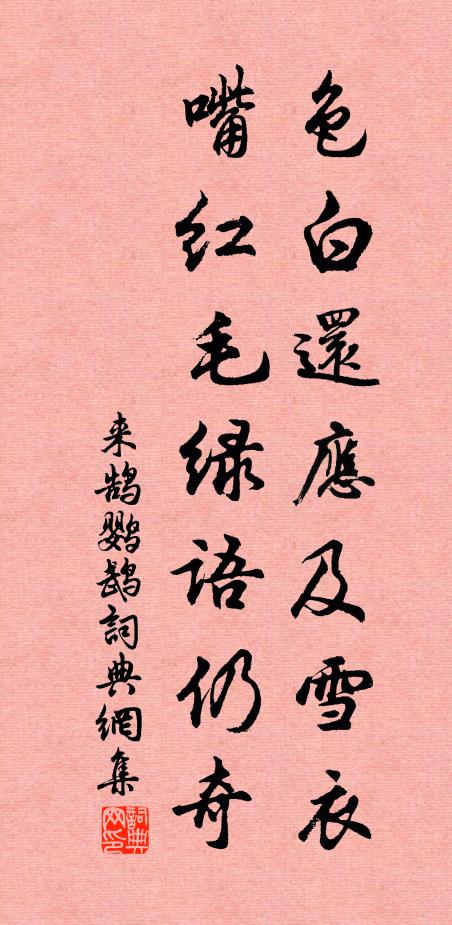 色白還應及雪衣
嘴红毛緑語仍奇
来鹄鹦鹉詞典網集
詞典网印